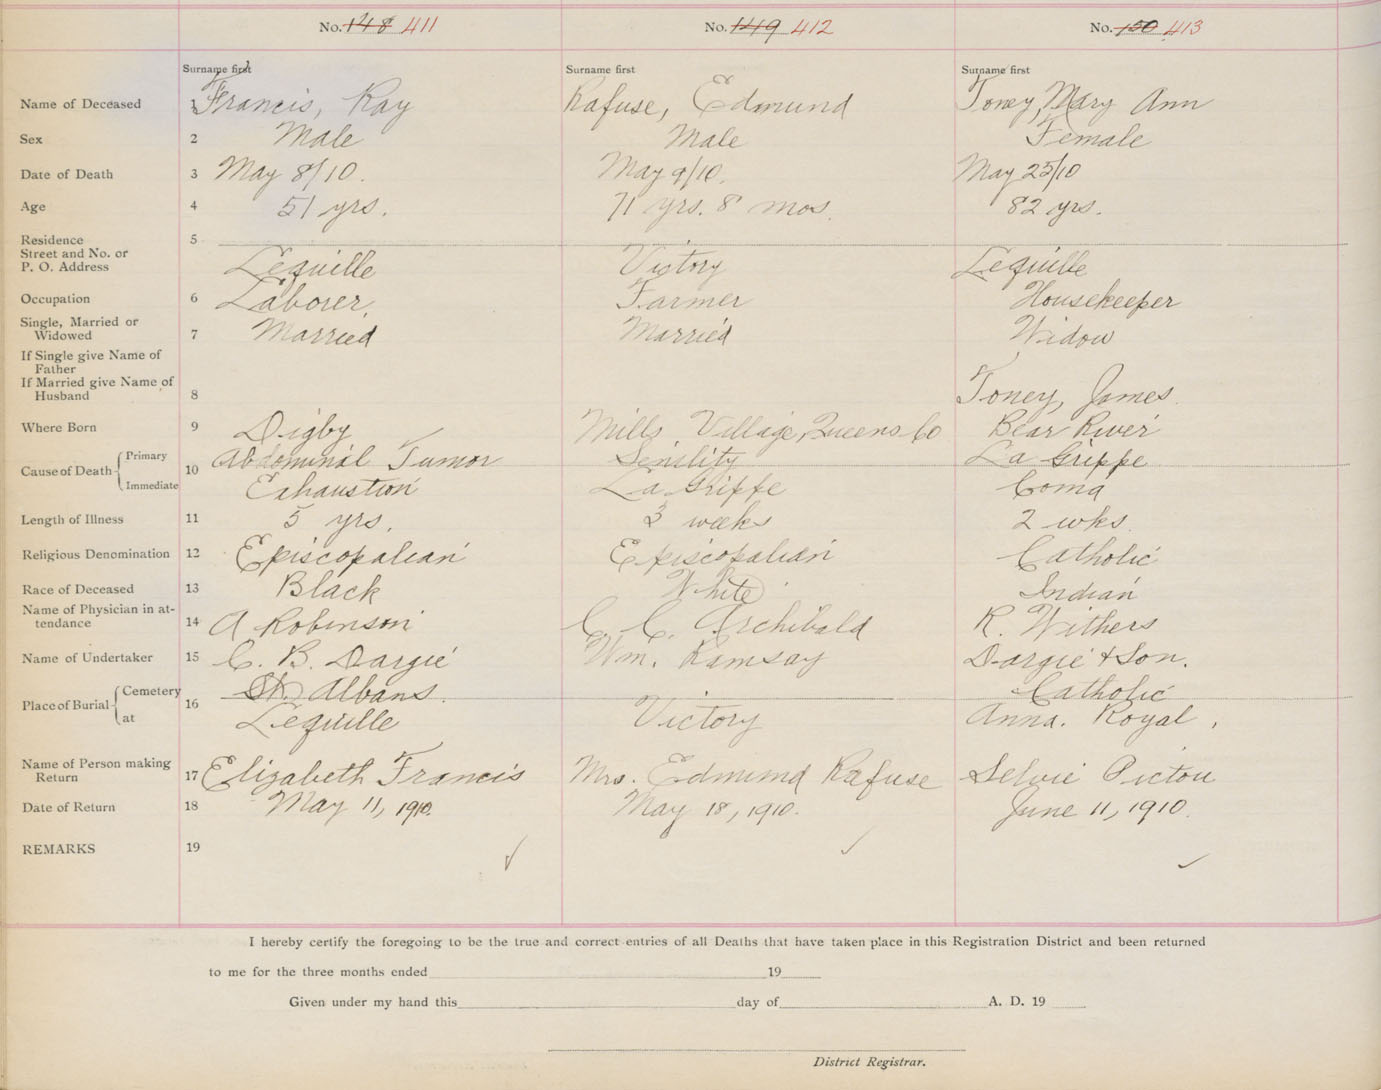 No. 148 411 No. 149 412 No. 150 413
Surname first Surname first Surname first
Name of Deceased 1 Francis, Ray Rafuse, Edmund Toney, Mary Ann
Sex 2 Male Male Female
Date of Death 3 May 8/10. May 9/10. May 25/10
Age 4 51 yrs. 71 yrs. 8 mos. 82 yrs.
Residence 5
Street and No. or
P. O. Address Lequille Victory Lequille
Occupation 6 Laborer, Farmer Housekeeper
Single, Married or
Widowed 7 Married Married Widow
If Single give Name of
Father
If Married give Name of
Husband 8 Toney, James
Where Born 9 Digby Mills Village, Queens Co Bear River
Cause of Death Primary 10 Abdominal Tumor Senility La Grippe
Immediate Exhaustion La Grippe Coma
Length of Illness 11 5 yrs. 3 weeks 2 wks.
Religious Denomination 12 Episcopalian Episcopalian Catholic
Race of Deceased 13 Black White Indian
Name of Physician in at-
tendance 14 A Robinson C. C. Archibald R. Withers
Name of Undertaker 15 C. B. Dargie Wm. Ramsay Dargie & Son.
Place of Burial Cemetery 16 St. Albans. Catholic
at Lequille Victory Anna. Royal.
Name of Person making
Return 17 Elizabeth Francis Mrs. Edmund Rafuse Selvie Pictou
Date of Return 18 May 11, 1910. May 18, 1910. June 11, 1910.
REMARKS 19
I hereby certify the foregoing to be the true and correct entries of all Deaths that have taken place in this Registration District and been returned
to me for the three months ended 19
Given under my hand this day of A. D. 19
District Registrar.